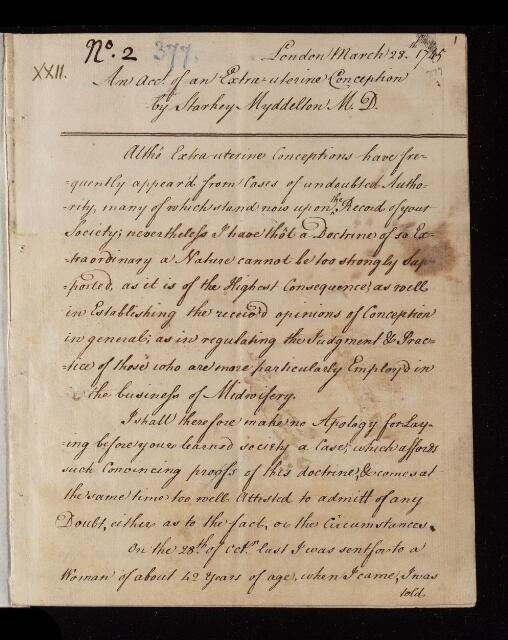 No. 2 377. London March 28th. 1745 1
XXII.
An Acct. of an Extra-uterine Conception
by Starkey Myddelton M. D.
Altho' Extra-uterine Conceptions have fre-
-quently appear'd from Cases of undoubted Autho-
-rity, many of which stand now upon the Record of your
Society; nevertheless I have tho't a Doctrine of so Ex-
-traordinary a Nature cannot be too strongly Sup-
-ported, as it is of the Highest Consequence, as well
in Establishing the receiv'd opinions of Conception
in general; as in regulating the Judgment & Prac-
-tice of those who are more particularly Employ'd in
the business of Midwifery.
I shall therefore make no Apology for Lay-
ing before your learned society a Case, which affords
such Convincing proofs of this doctrine, & comes at
the same time too well Attested to admitt of any
Doubt, either as to the fact, or the Circumstances.
On the 28th. of Octr. last I was sent for to a
Woman of about 42 Years of age, when I came, I was
told